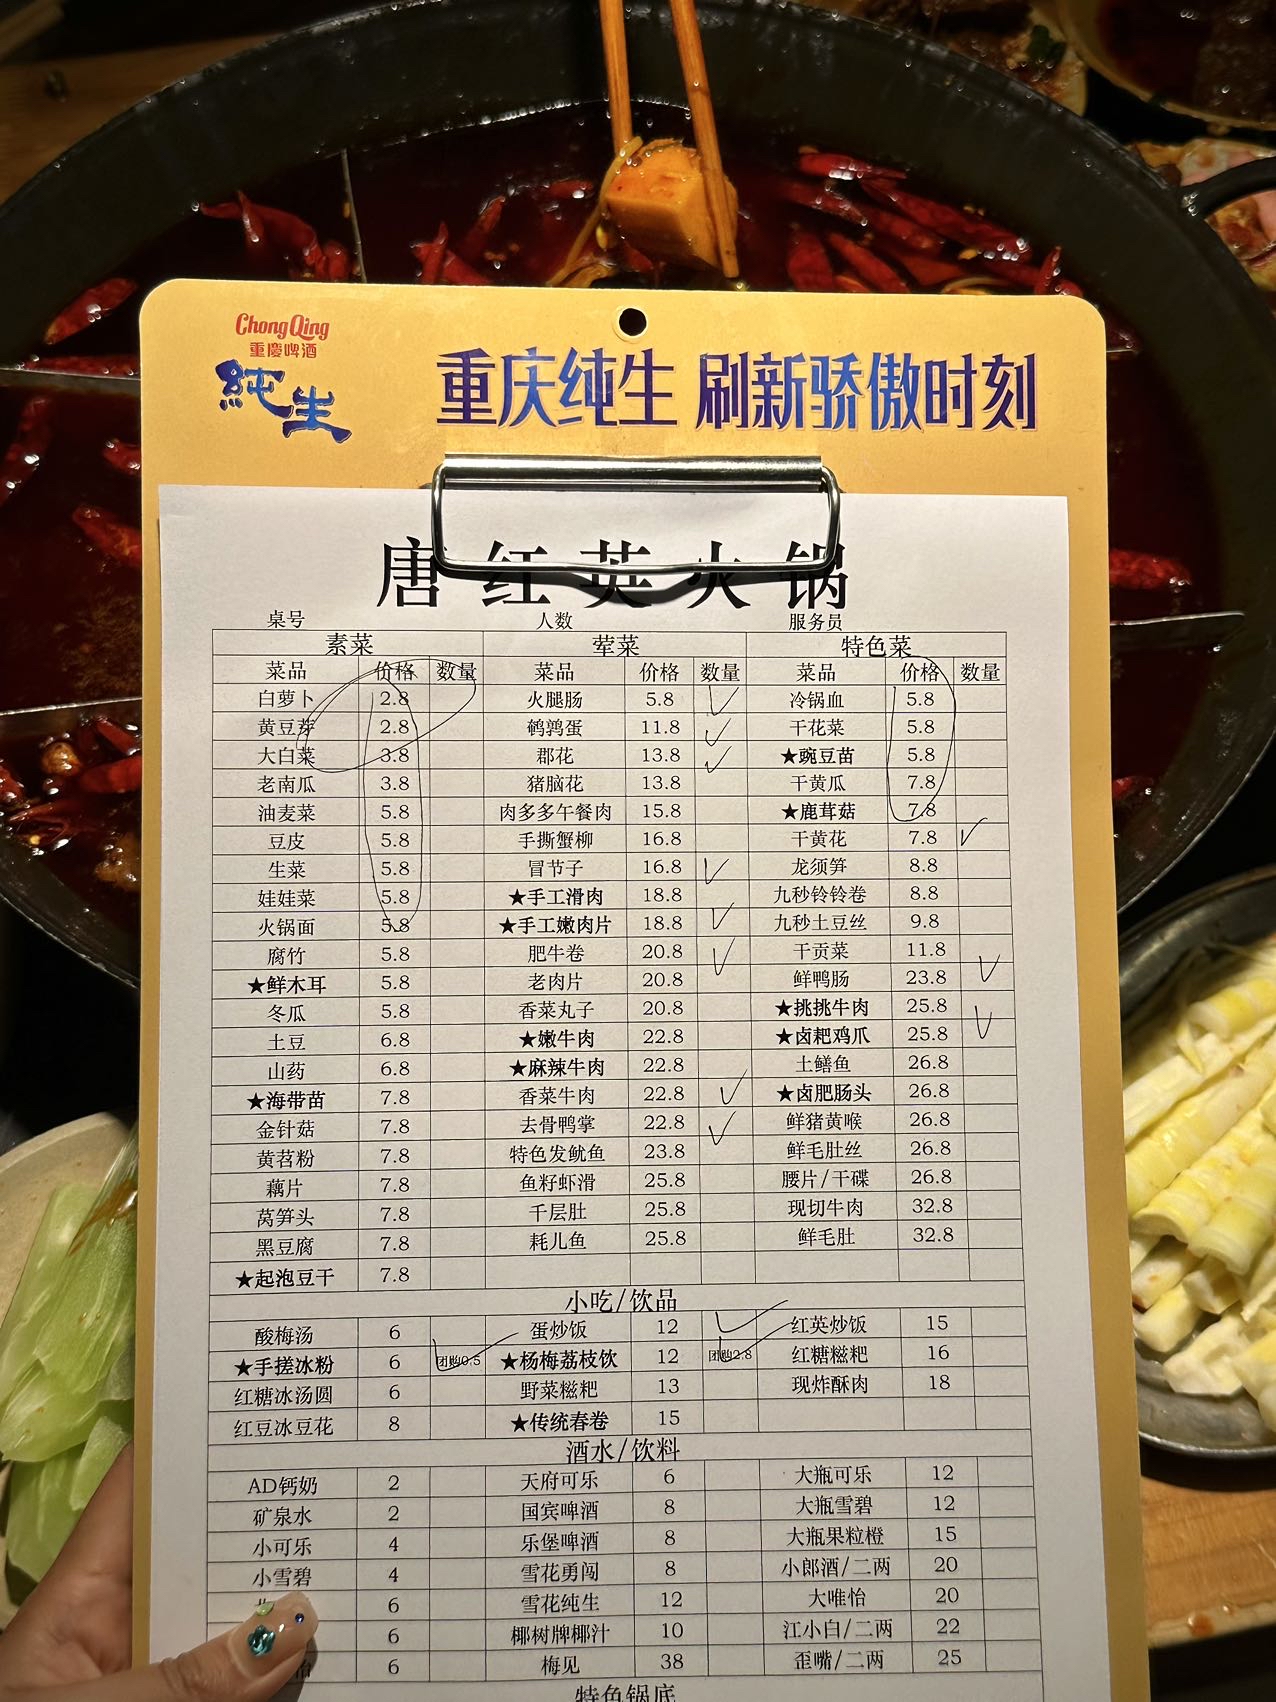 ChongQing
重慶啤酒
純生
重庆纯生 刷新骄傲时刻
唐红英火锅
桌号 人数 服务员
素菜 荤菜 特色菜
菜品 价格 数量 菜品 价格 数量 菜品 价格 数量
白萝卜 2.8 火腿肠 5.8 冷锅血 5.8
黄豆芽 2.8 鹌鹑蛋 11.8 干花菜 5.8
大白菜 3.8 郡花 13.8 ★豌豆苗 5.8
老南瓜 3.8 猪脑花 13.8 干黄瓜 7.8
油麦菜 5.8 肉多多午餐肉 15.8 ★鹿茸菇 7.8
豆皮 5.8 手撕蟹柳 16.8 干黄花 7.8
生菜 5.8 冒节子 16.8 龙须笋 8.8
娃娃菜 5.8 ★手工滑肉 18.8 九秒铃铃卷 8.8
火锅面 5.8 ★手工嫩肉片 18.8 九秒土豆丝 9.8
腐竹 5.8 肥牛卷 20.8 干贡菜 11.8
★鲜木耳 5.8 老肉片 20.8 鲜鸭肠 23.8
冬瓜 5.8 香菜丸子 20.8 ★挑挑牛肉 25.8
土豆 6.8 ★嫩牛肉 22.8 ★卤耙鸡爪 25.8
山药 6.8 ★麻辣牛肉 22.8 土鳝鱼 26.8
★海带苗 7.8 香菜牛肉 22.8 ★卤肥肠头 26.8
金针菇 7.8 去骨鸭掌 22.8 鲜猪黄喉 26.8
黄苕粉 7.8 特色发鱿鱼 23.8 鲜毛肚丝 26.8
藕片 7.8 鱼籽虾滑 25.8 腰片/干碟 26.8
莴笋头 7.8 千层肚 25.8 现切牛肉 32.8
黑豆腐 7.8 耗儿鱼 25.8 鲜毛肚 32.8
★起泡豆干 7.8
小吃/饮品
酸梅汤 6 蛋炒饭 12 红英炒饭 15
★手搓冰粉 6 团购0.5 ★杨梅荔枝饮 12 团购2.8 红糖糍粑 16
红糖冰汤圆 6 野菜糍粑 13 现炸酥肉 18
红豆冰豆花 8 ★传统春卷 15
酒水/饮料
AD钙奶 2 天府可乐 6 大瓶可乐 12
矿泉水 2 国宾啤酒 8 大瓶雪碧 12
小可乐 4 乐堡啤酒 8 大瓶果粒橙 15
小雪碧 4 雪花勇闯 8 小郎酒/二两 20
6 雪花纯生 12 大唯怡 20
6 椰树牌椰汁 10 江小白/二两 22
怡 6 梅见 38 歪嘴/二两 25
特色锅底